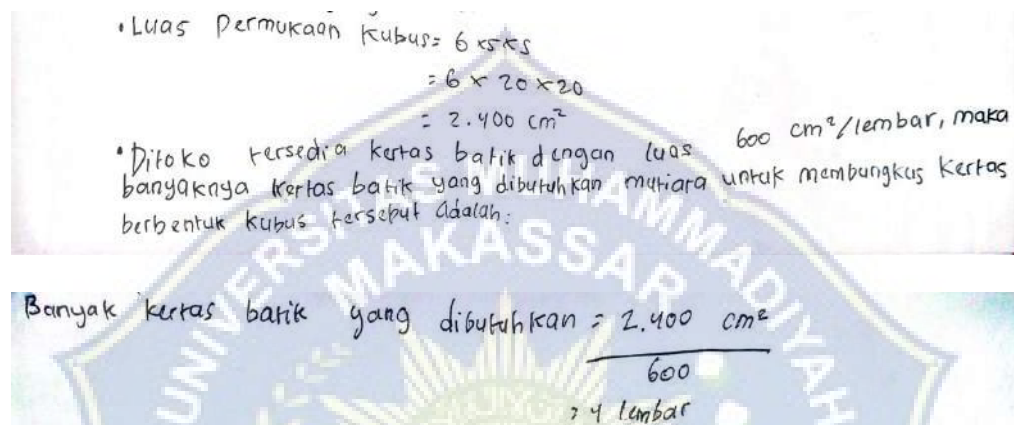 • Luas Permukaan Kubus = 6 x s x s
= 6 x 20 x 20
= 2.400 cm²
• Ditoko tersedia kertas batik dengan luas 600 cm²/lembar, maka
banyaknya kertas batik yang dibutuhkan mutiara untuk membungkus kertas
berbentuk kubus tersebut adalah:
Banyak kertas batik yang dibutuhkan = 2.400 cm²
600
= 4 lembar
UNIVERSITAS MUHAMMADIYAH
MAKASSAR